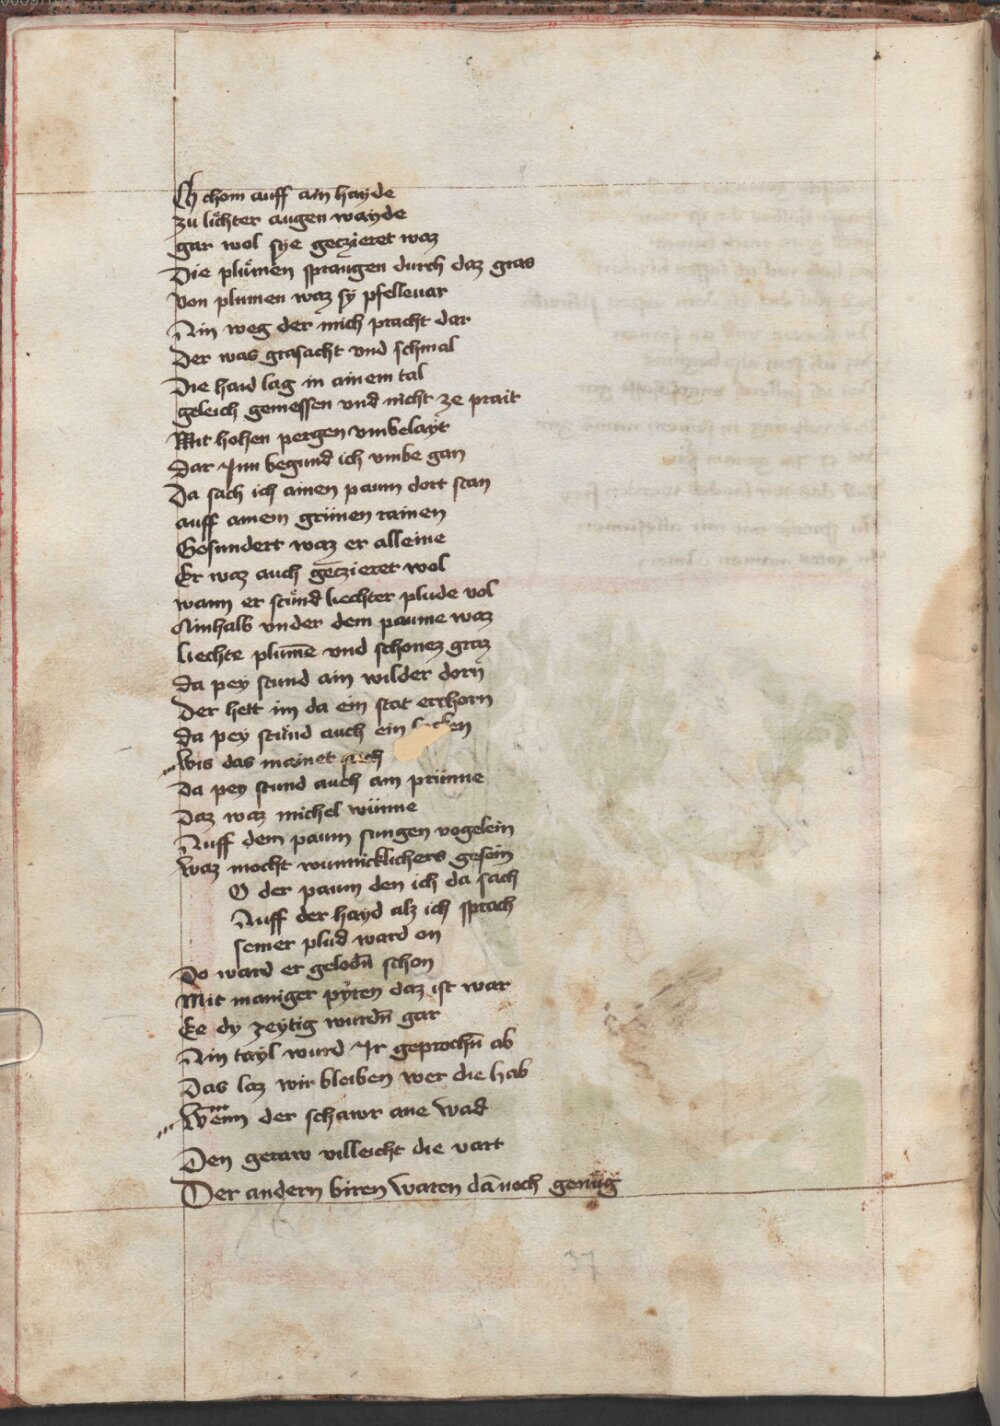 Ch chom auff ain hayde
zu lichter augen wayde
gar wol sye geczieret waz
Die plůmen sprangen durch daz gras
Von plumen waz sÿ pfellevar
Ain weg der mich pracht dar
Der was grasacht vnd schmal
Die haid lag in ainem tal
geleich gemessen vnd nicht ze prait
Mit hohen pergen vmbelayt
Dar Inn begund ich vmbe gan
Da sach ich ainen paum dort stan
auff ainem grünen rainen
Gesundert waz er alleine
Er waz auch geczieret wol
wann er stůnd liechter plude vol
Ainhalb vnder dem paume waz
liechte plumē vnd schonez graz
Da pey stund ain wilder dorn
Der hett im da ein stat erchorn
Da pey stůnd auch ein
Wis das mainet
Da pey stund auch ain prünne
Daz waz michel wünne
Auff dem paum sungen vogelein
Waz mocht wunnicklichers gesein
O der paum den ich da sach
Auff der hayd alz ich sprach
seiner plud ward on
Do ward er gelodn̄ schon
Mit maniger pyren daz ist war
Ee dy zeytig wurdn̄ gar
Ain tayl wurd Ir geprochn̄ ab
Das laz wir bleiben wer die hab
Wenn der schawr ane wad
Den geraw villeicht die vart
Der andern biren waren dānoch genůg
37